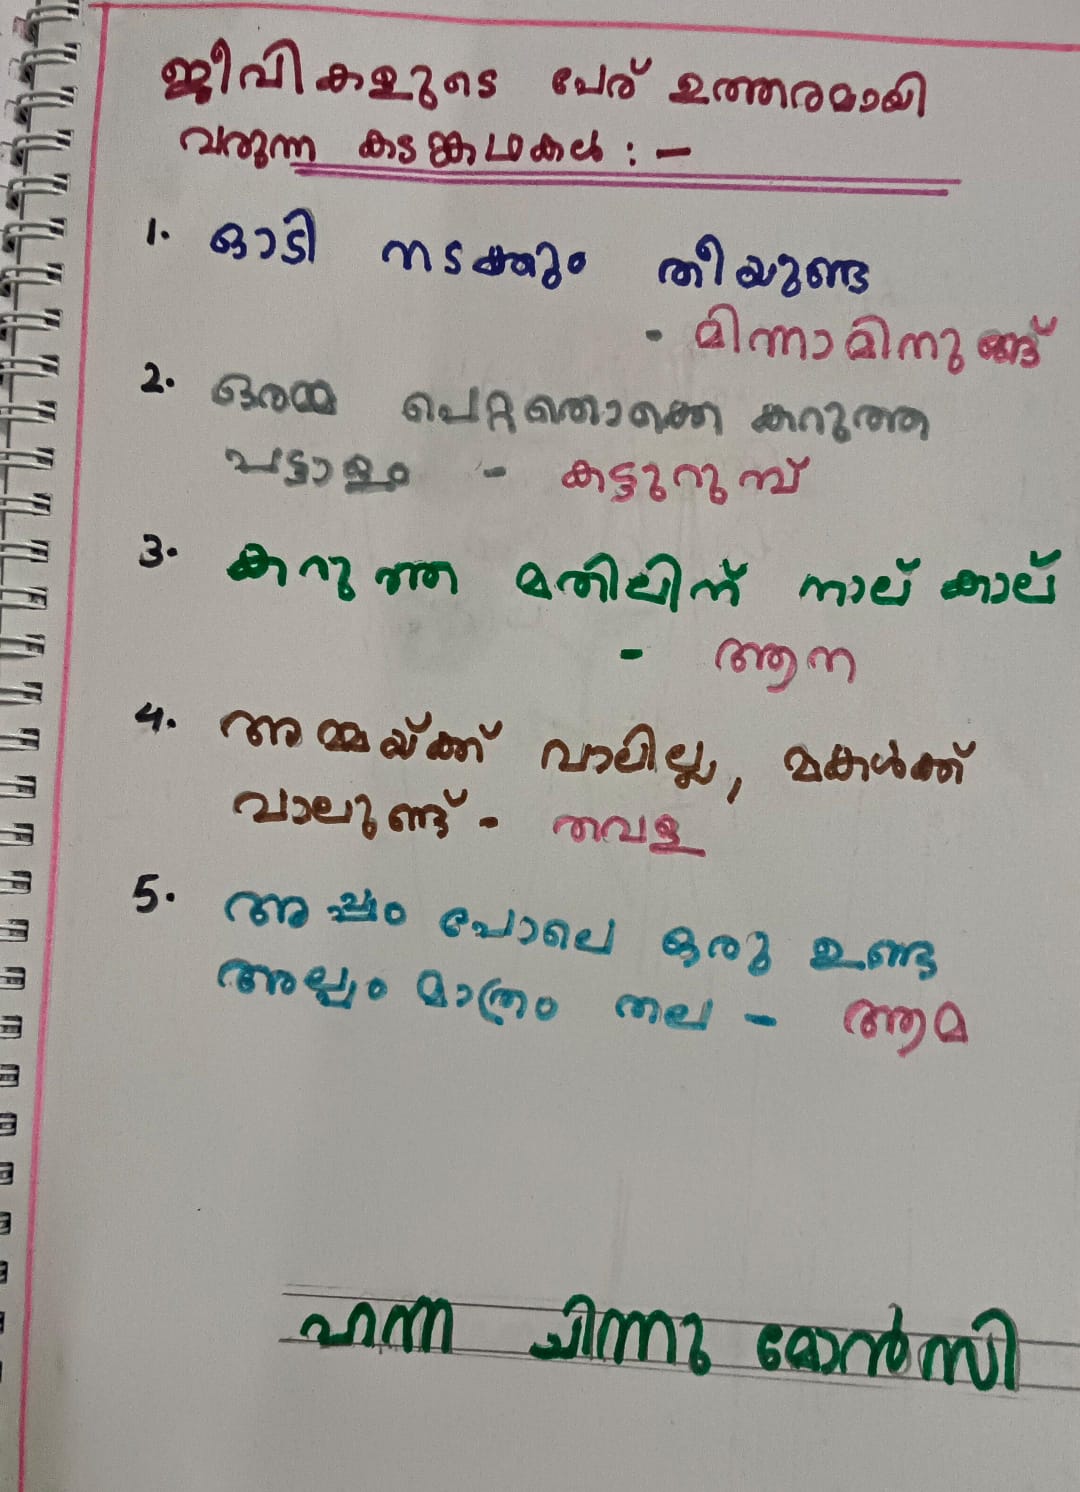 ജീവികളുടെ പേര് ഉത്തരമായി
വരുന്ന കടങ്കഥകൾ : -
1. ഓടി നടക്കും തീയുണ്ട
- മിന്നാമിനുങ്ങ്
2. ഒരമ്മ പെറ്റതൊക്കെ കറുത്ത
പട്ടാളം - കട്ടുറുമ്പ്
3. കറുത്ത മതിലിന് നാല് കാല്
- ആന
4. അമ്മയ്ക്ക് വാലില്ല, മകൾക്ക്
വാലുണ്ട് - തവള
5. അപ്പം പോലെ ഒരു ഉണ്ട
അല്പം മാത്രം തല - ആമ
ഹന്ന ചിന്നു മോൻസി